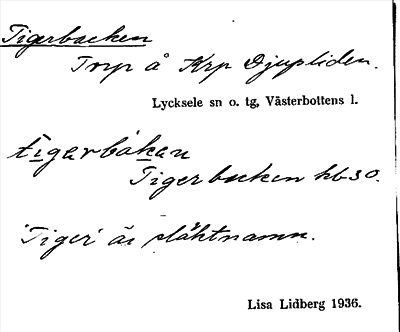 Tigerbacken
Torp å Krp Djupliden.
Lycksele sn o. tg, Västerbottens l.
tigarbakan
Tigerbacken hb 30.
'Tiger' är släktnamn.
Lisa Lidberg 1936.